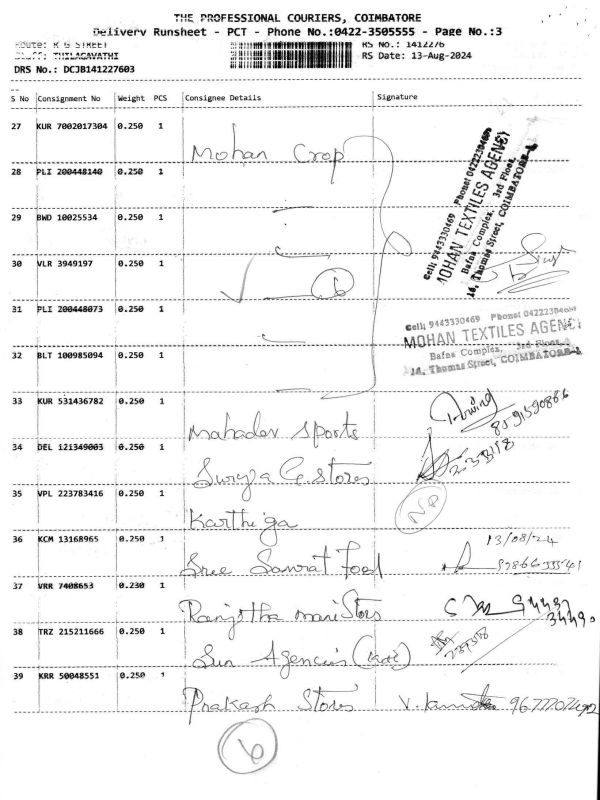 THE PROFESSIONAL COURIERS, COIMBATORE
Delivery Runsheet - PCT - Phone No.:0422-3505555 - Page No.:3
Route: R G STREET
RS No.: 1412276
Staff: THILAGAVATHI
RS Date: 13-Aug-2024
DRS No.: DCJB141227603
S No Consignment No Weight PCS Consignee Details Signature
27 KUR 7002017304 0.250 1 Mohan Crop
28 PLI 200448140 0.250 1
29 BWD 10025534 0.250 1
30 VLR 3949197 0.250 1 6
31 PLI 200448073 0.250 1
32 BLT 100985094 0.250 1
Cell: 9443330469 Phone: 04222304696
MOHAN TEXTILES AGENCY
Bafna Complex, 3rd Floor,
14, Thomas Street, COIMBATORE-1
Cell: 9443330469 Phone: 0422230469
MOHAN TEXTILES AGENC
Bafna Complex, 3rd Floor,
14, Thomas Street, COIMBATORE-1
33 KUR 531436782 0.250 1 Mahadev Sports
34 DEL 121349003 0.250 1 Surya G stores
35 VPL 223783416 0.250 1 Karthiga
36 KCM 13168965 0.250 1 Sree Samrat Food 13/08/24
37 VRR 7408653 0.230 1 Ranjitha mani Stors
38 TRZ 215211666 0.250 1 Sun Agencies
39 KRR 50048551 0.250 1 Prakash Stores
6